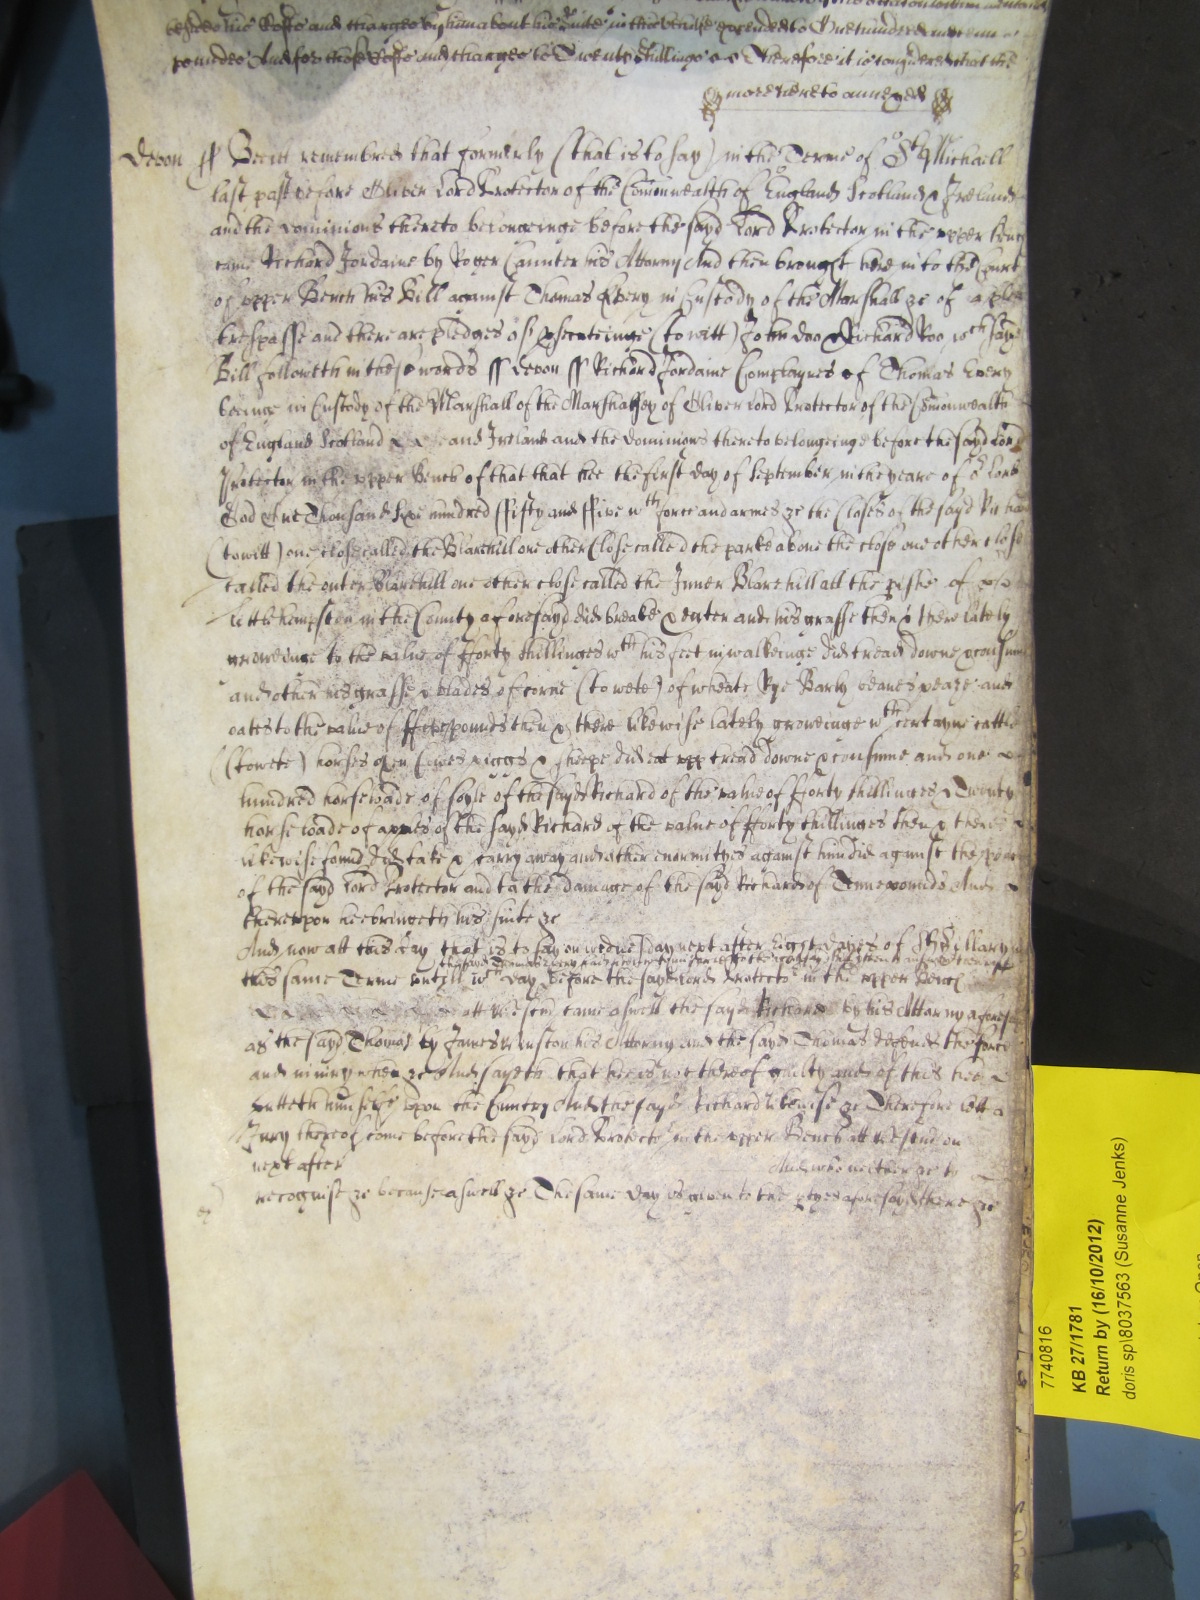 besides his Costs and charges by him about his suite in this behalfe expended to One hundred
poundes And for those Costs and charges to Twenty shillings Therefore it is considered that the
more hereto annexed
Devon ss Bee it remembred that formerly (that is to say) in the Terme of St Michaell
last past before Oliver Lord Protector of the Comonwealth of England Scotland & Ireland
and the Dominions thereto belongeinge before the sayd Lord Protector in the upper bench
came Richard Jordaine by Roger Caunter his Attorny And then brought here in to the Court
of upper Bench his Bill against Thomas Every in Custody of the Marshall &c of a plea
trespasse and there are pledges of prsecuteinge (to witt) John Doo & Richard Roo wch sayd
Bill followeth in these words ss Devon ss Richard Jordaine Complaynes of Thomas Every
beinge in Custody of the Marshall of the Marshalsey of Oliver Lord Protector of the Comonwealth
of England Scotland and Ireland and the dominions thereto belongeinge before the sayd Lord
Protector in the upper Bench of that that hee the first day of September in the yeare of or Lord
God One Thousand Sixe hundred ffifty and ffive wth force and armes &c the Closes of the sayd Richard
(to witt) one close called the Blarehill one other Close called the parke above the close one other close
called the outer Blarehill one other close called the Inner Blarehill all the pishe of
Littlehempston in the County aforesayd did breake & enter and his grasse then & there lately
groweinge to the value of fforty shillinges wth his feet in walkeinge did tread downe & consume
and other his grasse & blades of corne (to wete) of wheate Rye Barly beanes pease and
oates to the value of ffive pounds then & there likewise lately groweinge wth certayne cattle
(to wete) horses oxen Cowes piggs & sheepe did eat upp tread downe & consume and one
hundred horse loade of soyle of the sayd Richard of the value of fforty shillinges & Twenty
horse loade of apples of the sayd Richard of the value of fforty shillinges then & there
likewise found did take & carry away and other enormityes against him did against the peace
of the sayd Lord Protector and to the damage of the sayd Richard of Tenne pounds And
thereupon hee bringeth his suite &c
And now att this day that is to say on wednesday next after Eight dayes of St Hillary in
this same Terme untill wch day before the sayd Lord Protector in the upper Bench
att Westm came aswell the sayd Richard by his Attorny aforesayd
as the sayd Thomas by James Winston his Attorny And the sayd Thomas defends the force
and iniury when &c And sayeth that hee is not thereof guilty and of this hee
putteth himselfe upon the Cuntry And the sayd Richard likewise &c Therefore lett a
Jury thereof come before the sayd Lord Protector in the upper Bench att Westm on
next after And who neither &c to
recognise &c because aswell &c The same day is given to the ptyes aforesayd there &c
7740816
KB 27/1781
Return by (16/10/2012)
doris sp\8037563 (Susanne Jenks)